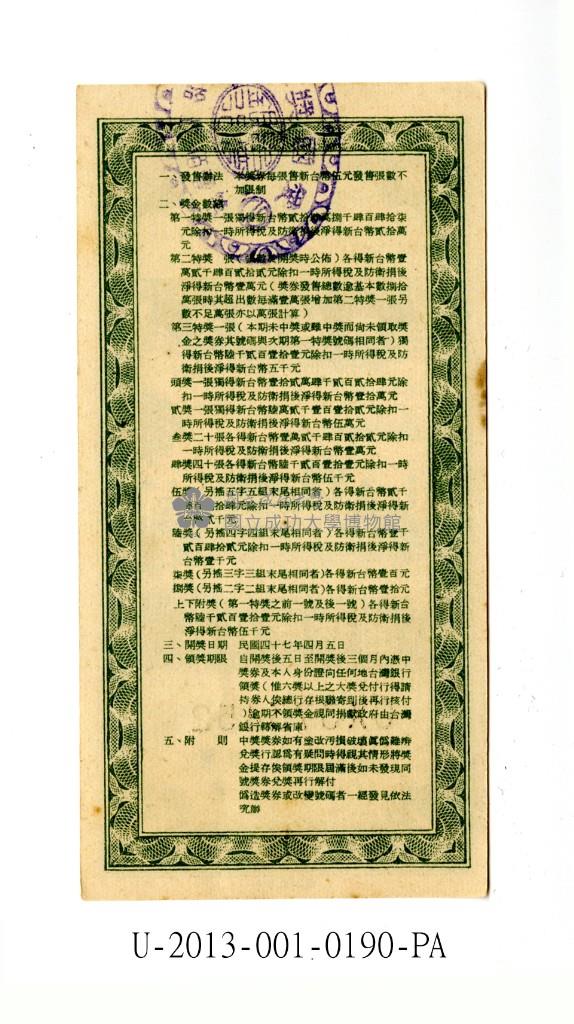 一、發售辦法　本獎券每張售新台幣伍元發售張數不
加限制
二、獎金數額
第一特獎一張獨得新台幣貳拾 萬捌千肆百肆拾柒
元除扣一時所得稅及防衛捐後淨得新台幣貳拾萬
元
第二特獎　張（張數於開獎時公佈）各得新台幣壹
萬貳千肆百貳拾貳元除扣一時所得稅及防衛捐後
淨得新台幣壹萬元（獎券發售總數逾基本數捌拾
萬張時其超出數每滿壹萬張增加第二特獎一張另
數不足萬張亦以萬張計算）
第三特獎一張（本期未中獎或雖中獎而尚未領取獎
金之獎券其號碼與次期第一特獎號碼相同者）獨
得新台幣陸千貳百壹拾壹元除扣一時所得稅及防
衛捐後淨得新台幣五千元
頭獎一張獨得新台幣壹拾貳萬肆千貳百貳拾肆元除
扣一時所得稅及防衛捐後淨得新台幣壹拾萬元
貳獎一張獨得新台幣陸萬貳千壹百壹拾貳元除扣一
時所得稅及防衛捐後淨得新台幣伍萬元
叁獎二十張各得新台幣壹萬貳千肆百貳拾貳元除扣
一時所得稅及防衛捐後淨得新台幣壹萬元
肆獎四十張各得新台幣陸千貳百壹拾壹元除扣一時
所得稅及防衛捐後淨得新台幣伍千元
伍獎（另搖五字五組末尾相同者）各得新台幣貳千
肆百 拾肆元除扣一時所得稅及防衛捐後淨得新
台幣貳千元
陸獎（另搖四字四組末尾相同者）各得新台幣壹千
貳百肆拾貳元除扣一時所得稅及防衛捐後淨得新
台幣壹千元
柒獎（另搖三字三組末尾相同者）各得新台幣壹百元
捌獎（另搖二字二組末尾相同者）各得新台幣壹拾元
上下附獎（第一特獎之前一號及後一號）各得新台
幣陸千貳百壹拾壹元除扣一時所得稅及防衛捐後
淨得新台幣伍千元
三、開獎日期　民國四十七年四月五日
四、領獎期限　自開獎後五日至開獎後三個月內憑中
獎券及本人身份證向任何地台灣銀行
領獎（惟六獎以上之大獎兌付行得請
持券人俟總行存根聯寄到後再行核付
）逾期不領獎金視同捐獻政府由台灣
銀行轉解省庫
五、附　　則　中獎獎券如有塗改污損破壞真偽難辨
兌獎行認為有疑問時得視其情形將獎
金提存俟領獎期限屆滿後如未發現同
號獎券兌獎再行解付
偽造獎券或改變號碼者一經發見依法
究辦
國立成功大學博物館
U-2013-001-0190-PA